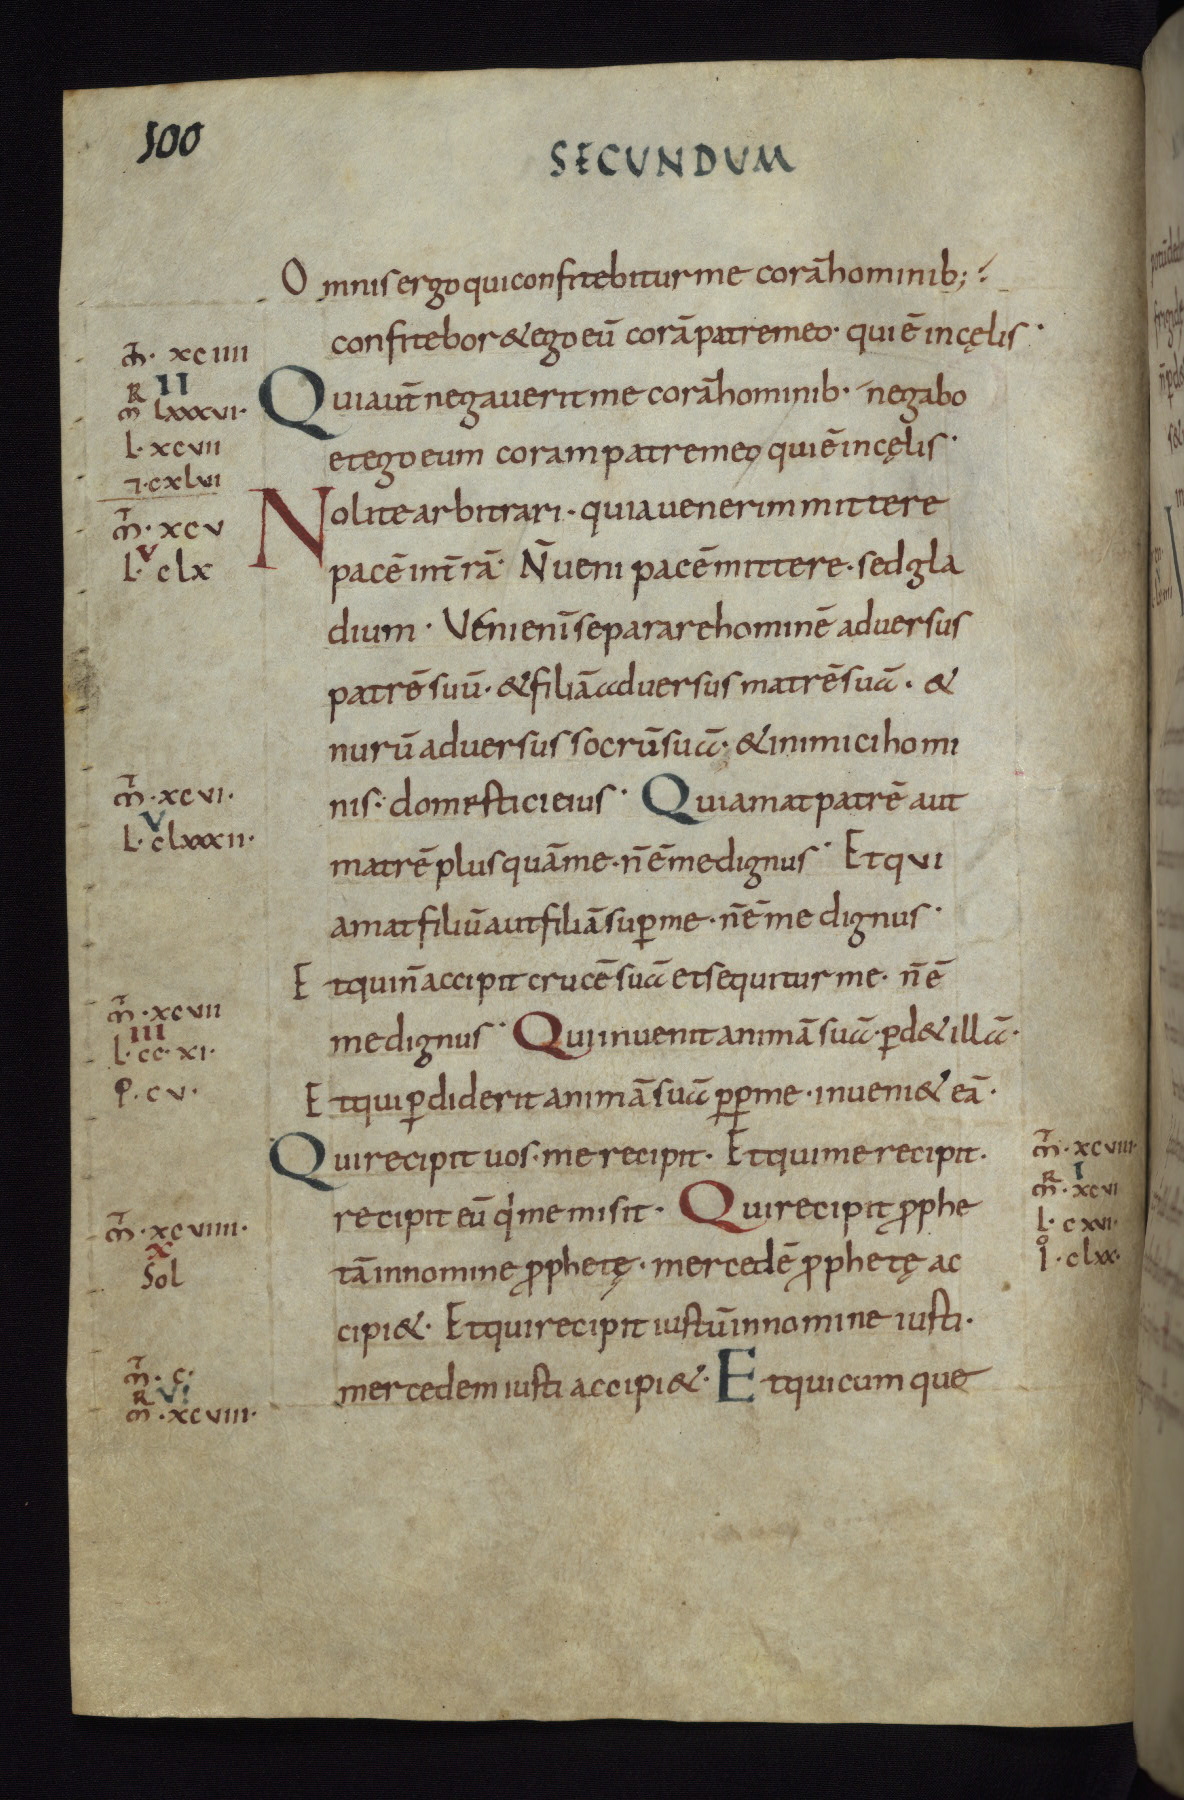 500
SECUNDUM
Omnis ergo qui confitebitur me corā hominib;
confitebor & ego eū corā patre meo· qui ē in cęlis·
m̄· xciiii
Qui aut̄ negaverit me corā hominib· negabo
R II
m lxxxvi·
et ego eum coram patre meo qui ē in cęlis·
L· xcvii
⁊· cxlvi
Nolite arbitrari· quia venerim mittere
m̄· xcv
pacē in t̄rā· N̄ veni pacē mittere· sed gla
V
L· clx
dium· Veni enī separare hominē adversus
patrē suū· & filiā adversus matrē suā· &
nurū adversus socrū suā· & inimici homi
nis· domestici eius· Qui amat patrē aut
m̄· xcvi·
V
L· clxxxii·
matrē plus quā me· n̄ ē me dignus· Et qui
amat filiū aut filiā sup̄ me· n̄ ē me dignus·
Et qui n̄ accipit crucē suā et sequitur me· n̄ ē
me dignus· Qui invenit animā suā· ꝑd& illā·
m̄· xcvii
III
L· cc· xi·
Et qui ꝑdiderit animā suā ꝓpt̄ me· inveni& eā·
P· cv·
Qui recipit vos· me recipit· Et qui me recipit·
m̄· xcviii·
I
R
m̄· xcvi
recipit eū q̇ me misit· Qui recipit ꝓphe
L· cxvi·
m̄· xcviiii·
X
Sol
tā in nomine ꝓphetę· mercedē ꝓphetę ac
I̊· clxx·
cipi&· Et qui recipit iustū in nomine iusti·
mercedem iusti accipi&· Et quicumque
m̄· c·
R VI
m· xcviii·